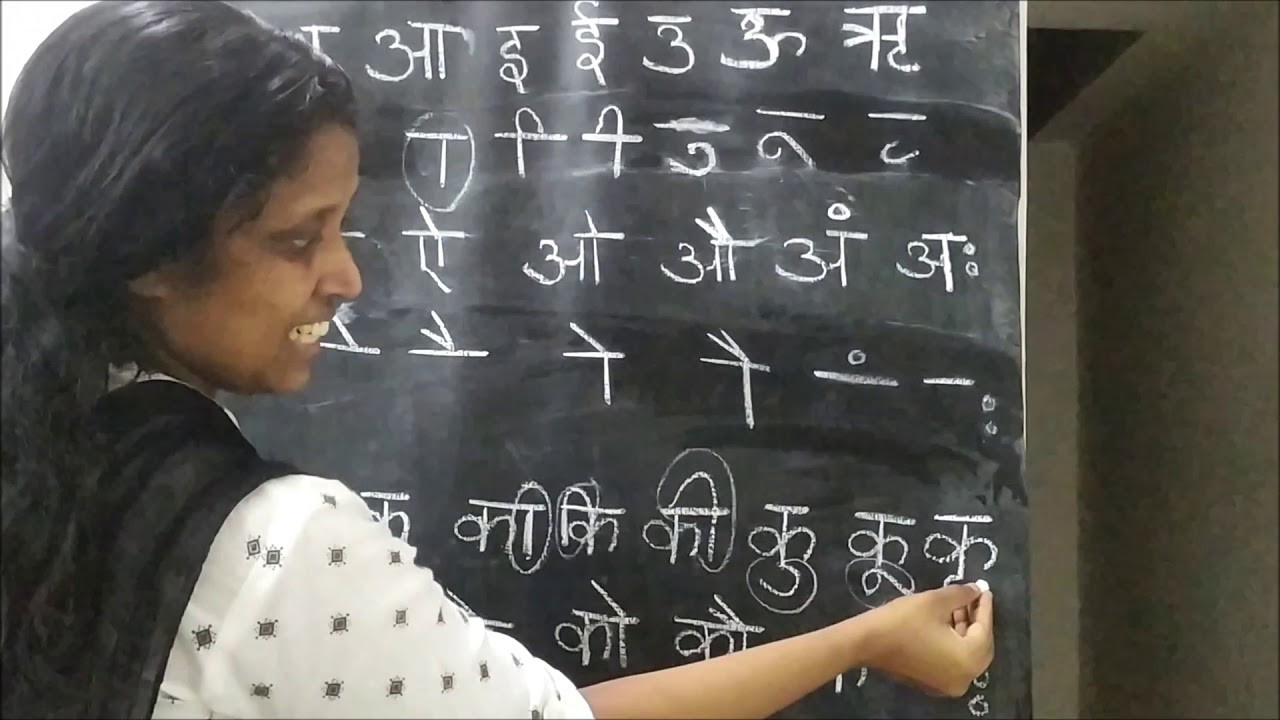 आ इ ई उ ऊ ऋ
ा ि ी ु ू ृ
ऐ ओ औ अं अः
े ै ो ौ ं ः
क का कि की कु कू कृ
को कौ